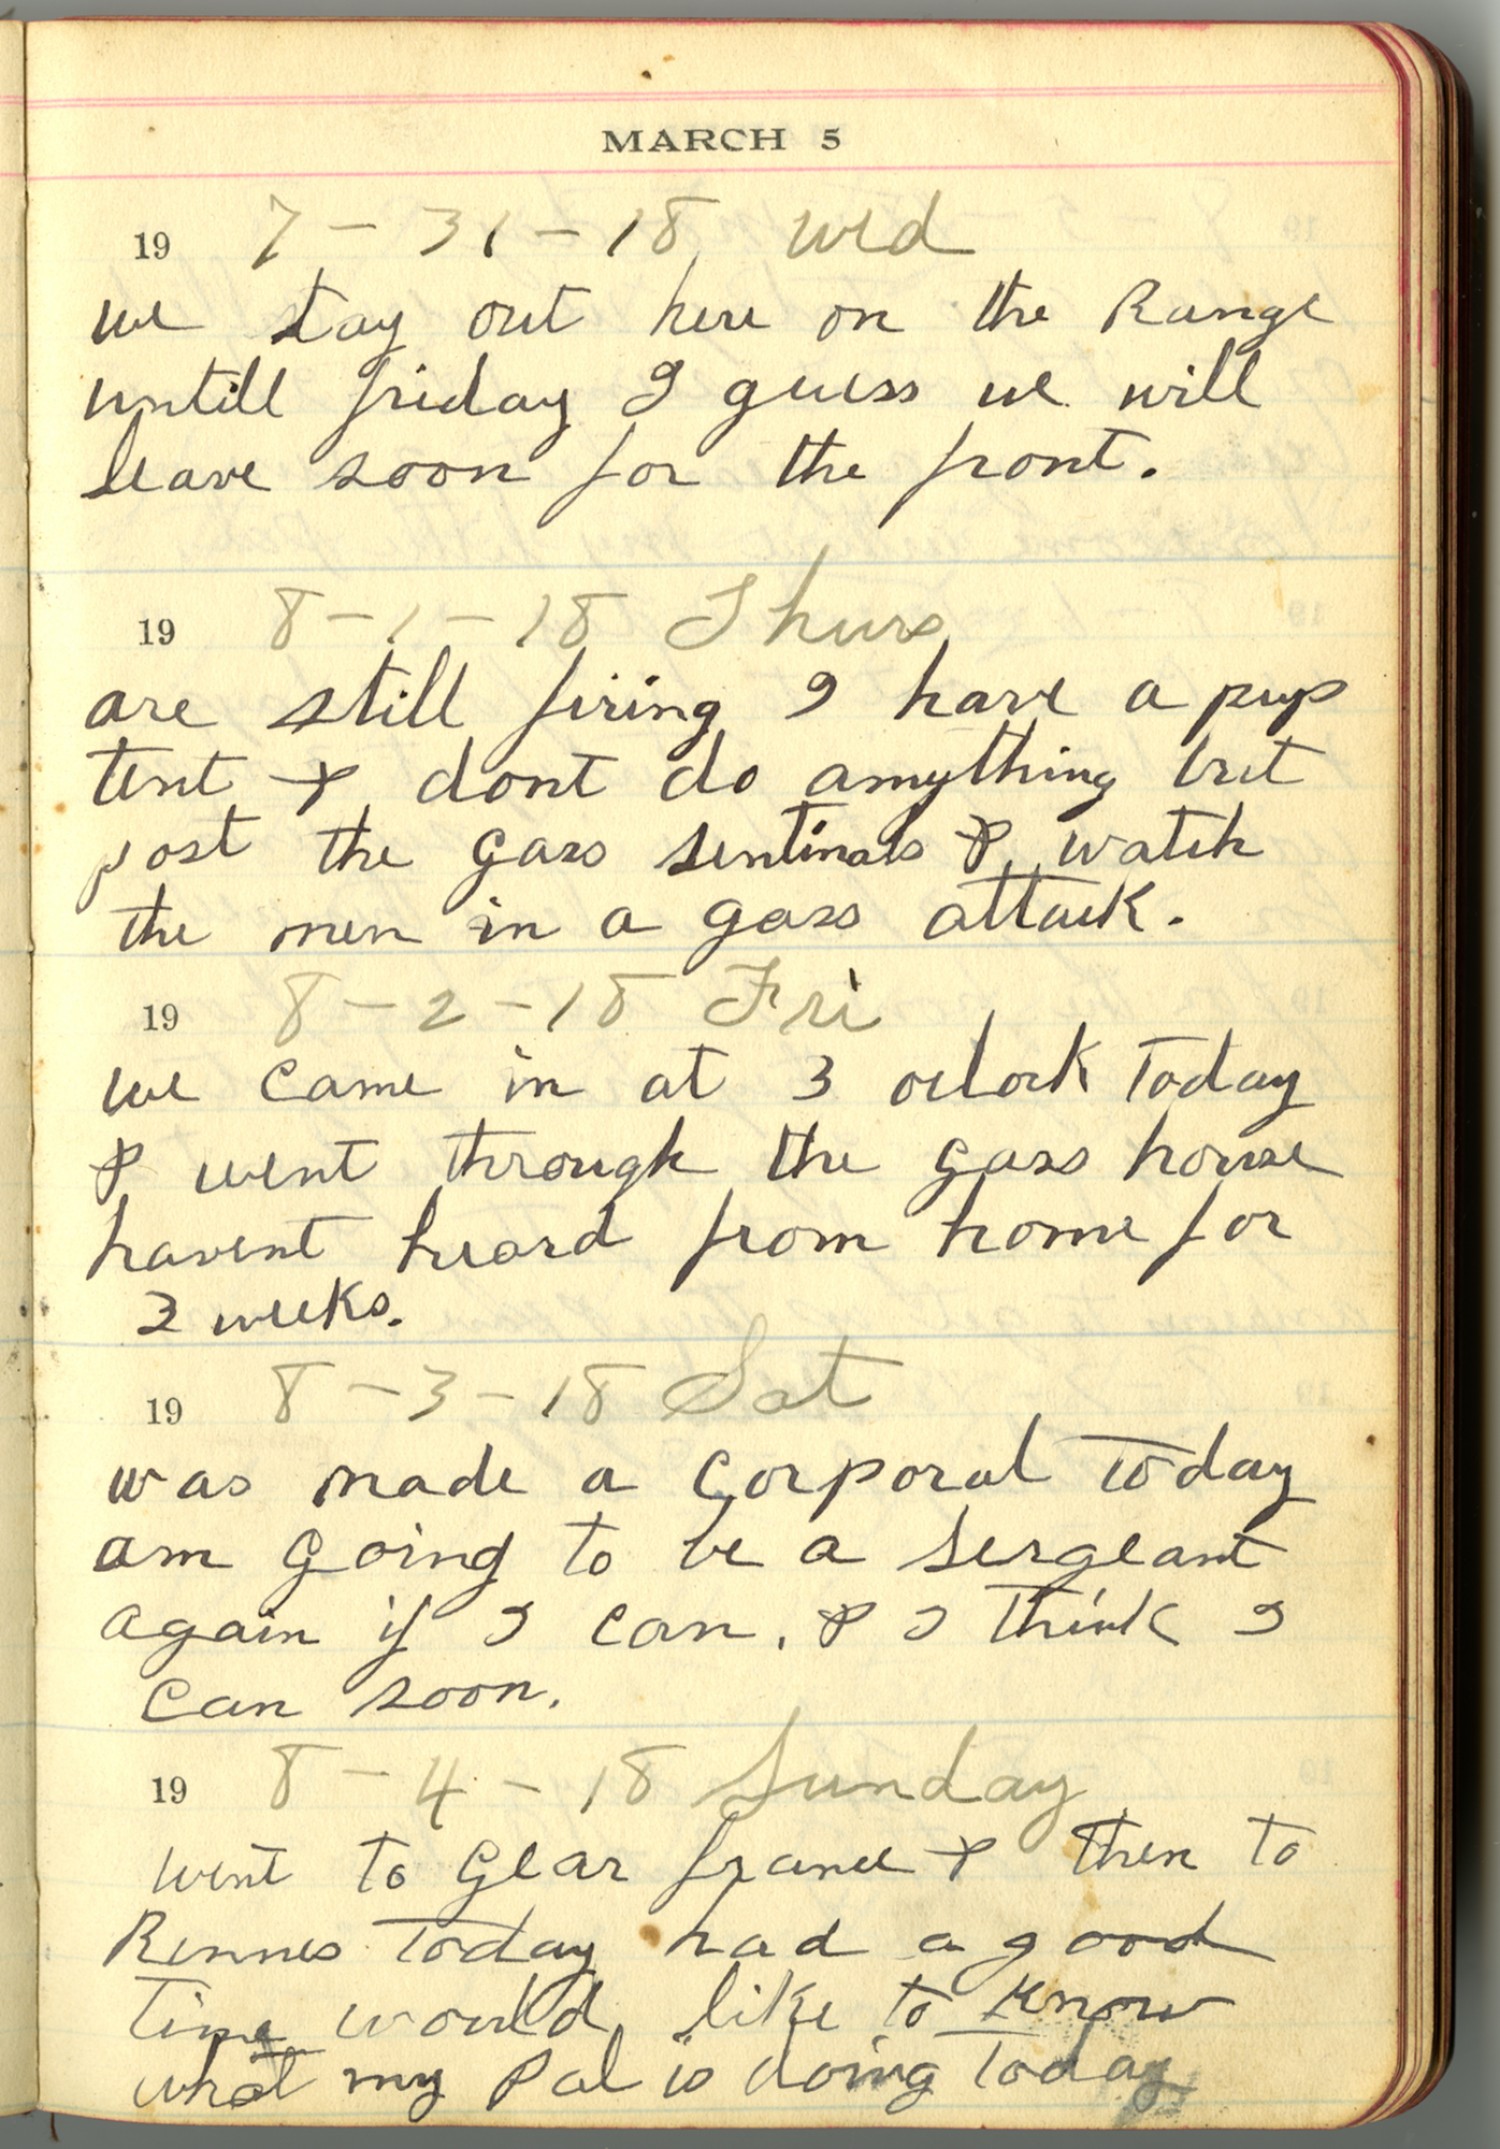 MARCH 5
19 7-31-18 Wed
we stay out here on the Range
untill friday I guess we will
leave soon for the front.
19 8-1-18 Thurs
are still firing I have a pup
tent & dont do anything but
post the gass sentinals & watch
the men in a gass attack.
19 8-2-18 Fri
we came in at 3 oclock today
& went through the gass house
havent heard from home for
3 weeks.
19 8-3-18 Sat
was made a Corporal today
am going to be a Sergeant
again if I can. & I think I
can soon.
19 8-4-18 Sunday
went to Glar france & then to
Rennes today had a good
time would like to know
what my Pal is doing today